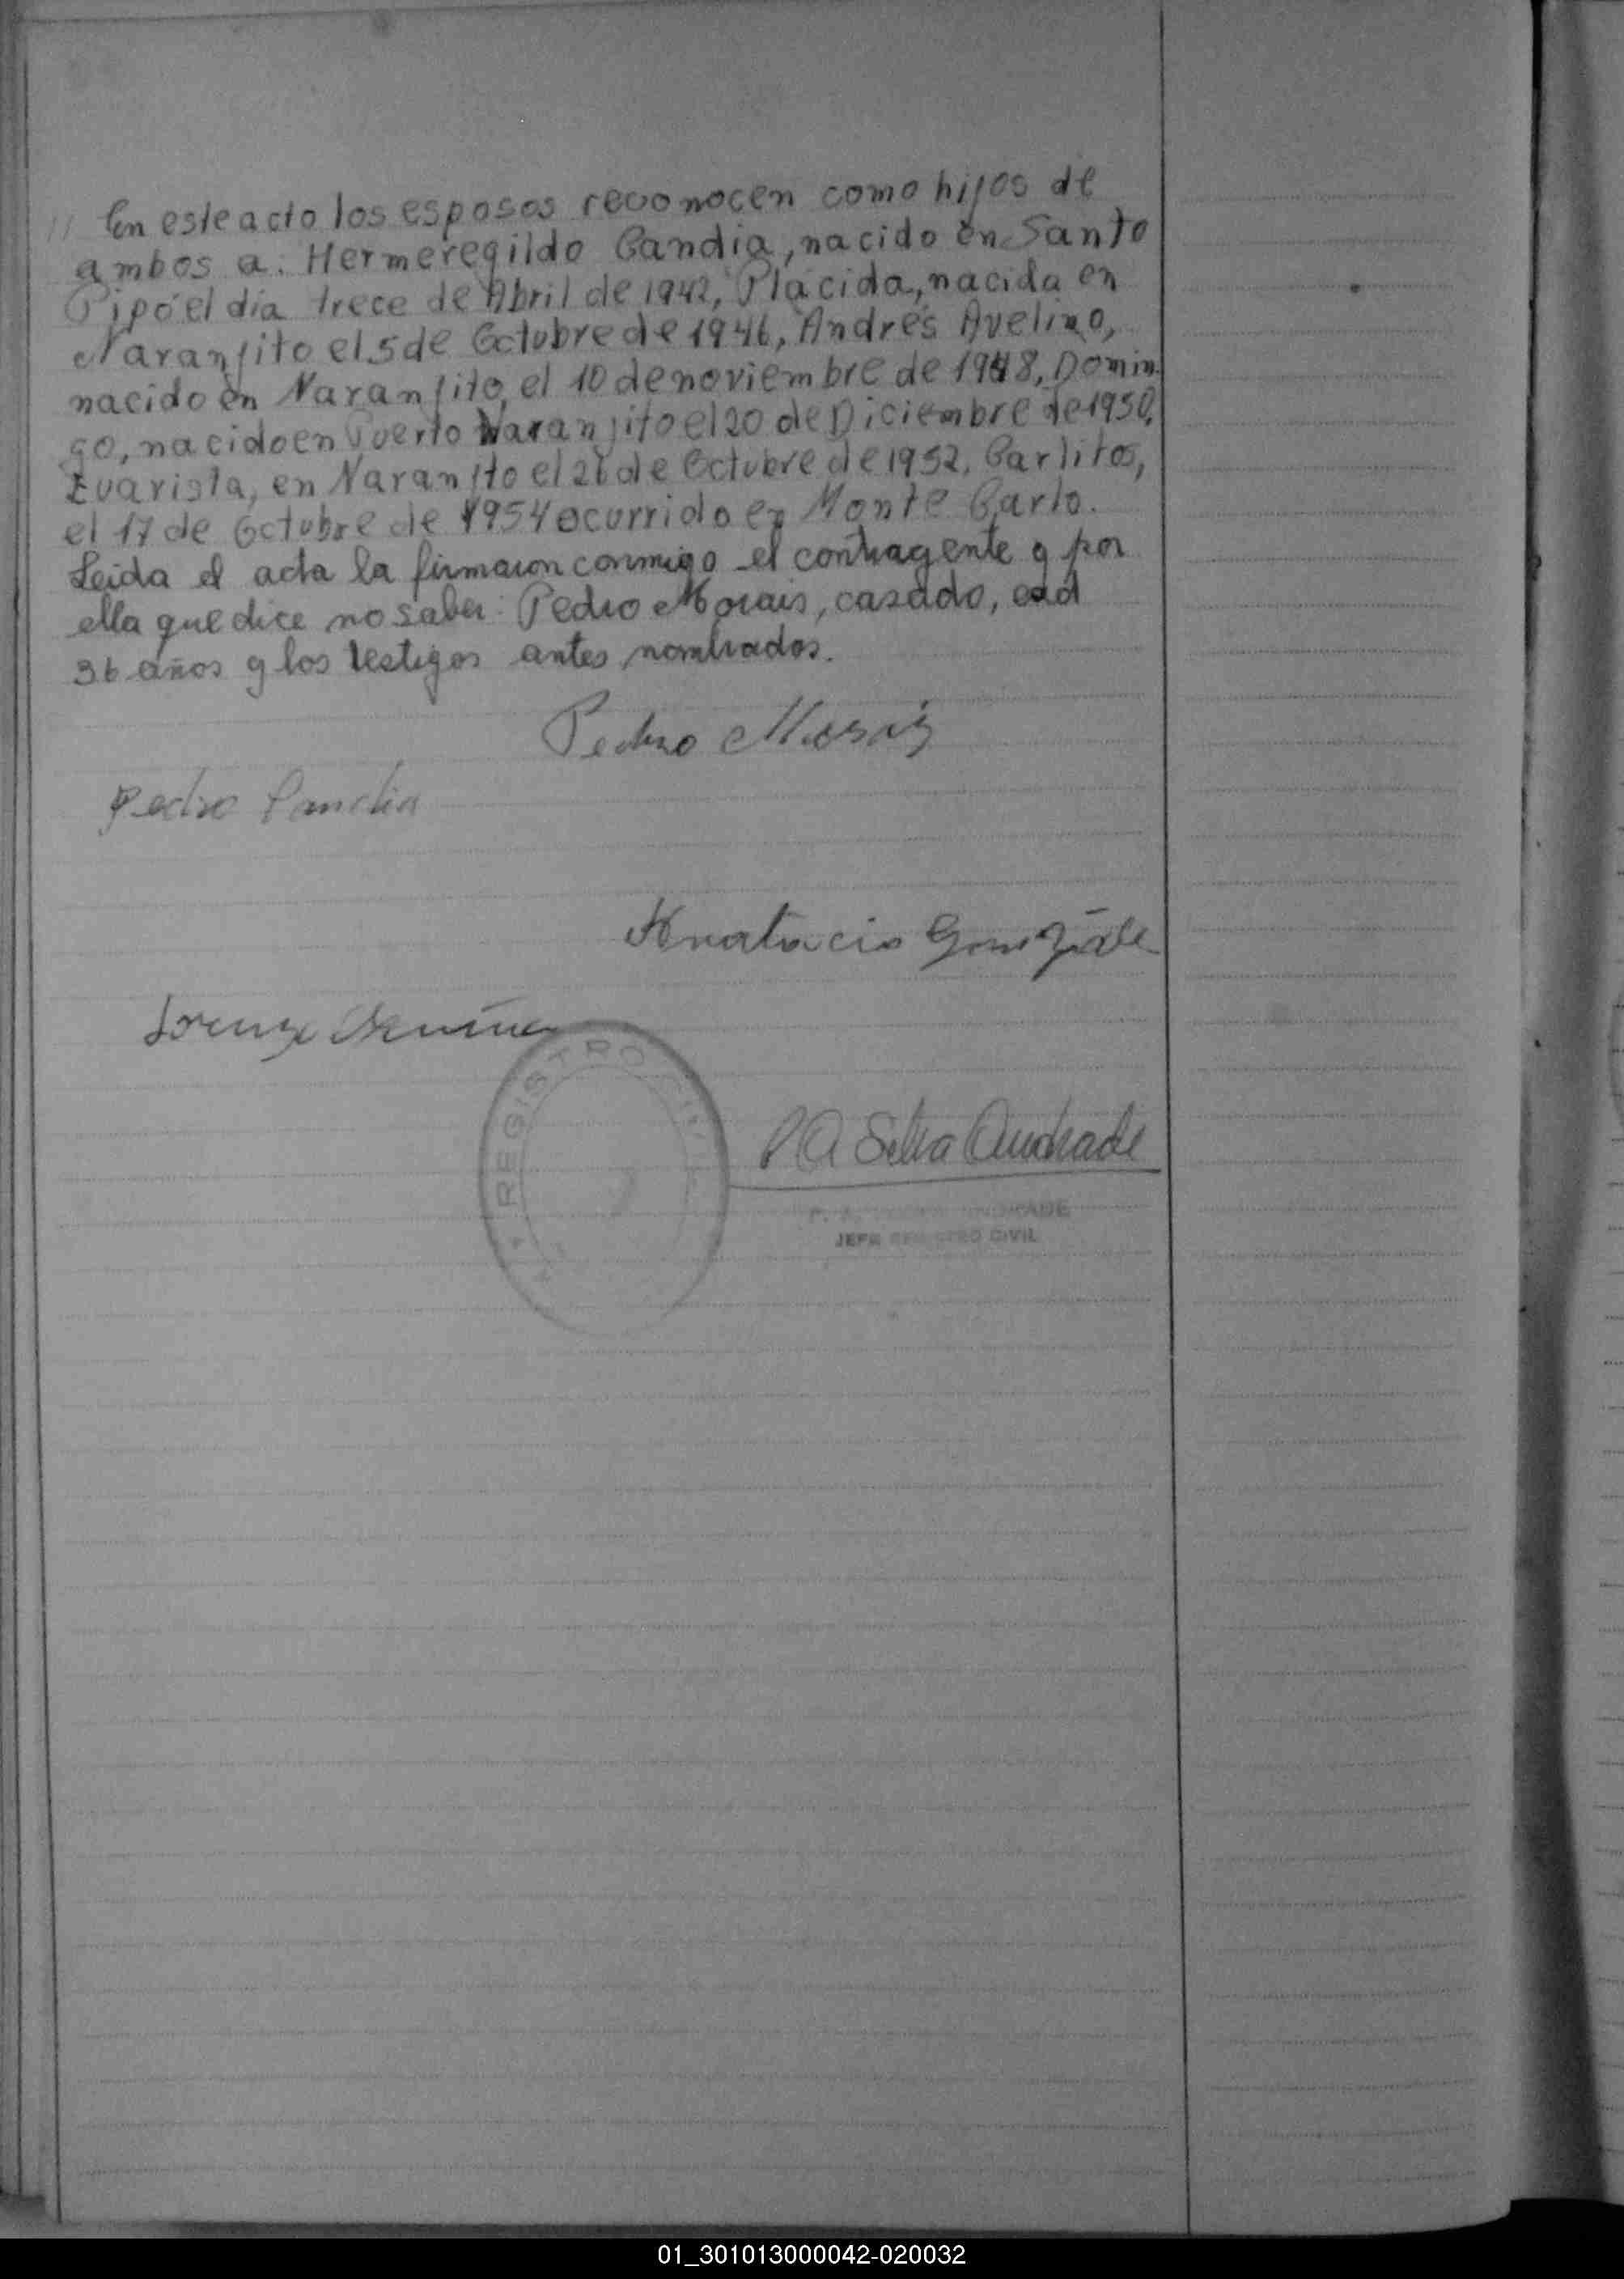 " En este acto los esposos reconocen como hijos de
ambos a: Hermeregildo Candia, nacido en Santo
Pipó el día trece de Abril de 1942, Plácida, nacida en
Naranjito el 5 de Octubre de 1946, Andrés Avelino,
nacido en Naranjito, el 10 de noviembre de 1948, Domin-
go, nacido en Puerto Naranjito el 20 de Diciembre de 1950,
Evarista, en Naranjito el 26 de Octubre de 1952, Carlitos,
el 17 de Octubre de 1954 ocurrido en Monte Carlo.
Leida el acta la firmaron conmigo el contragente y por
ella que dice no saber: Pedro Morais, casado, edad
36 años y los testigos antes nombrados.
Pedro Morais
Pedro Candia
Lorenzo
REGISTRO CIVIL
P A Silva Andrade
P. A. SILVA ANDRADE
JEFE REGISTRO CIVIL
01_301013000042-020032